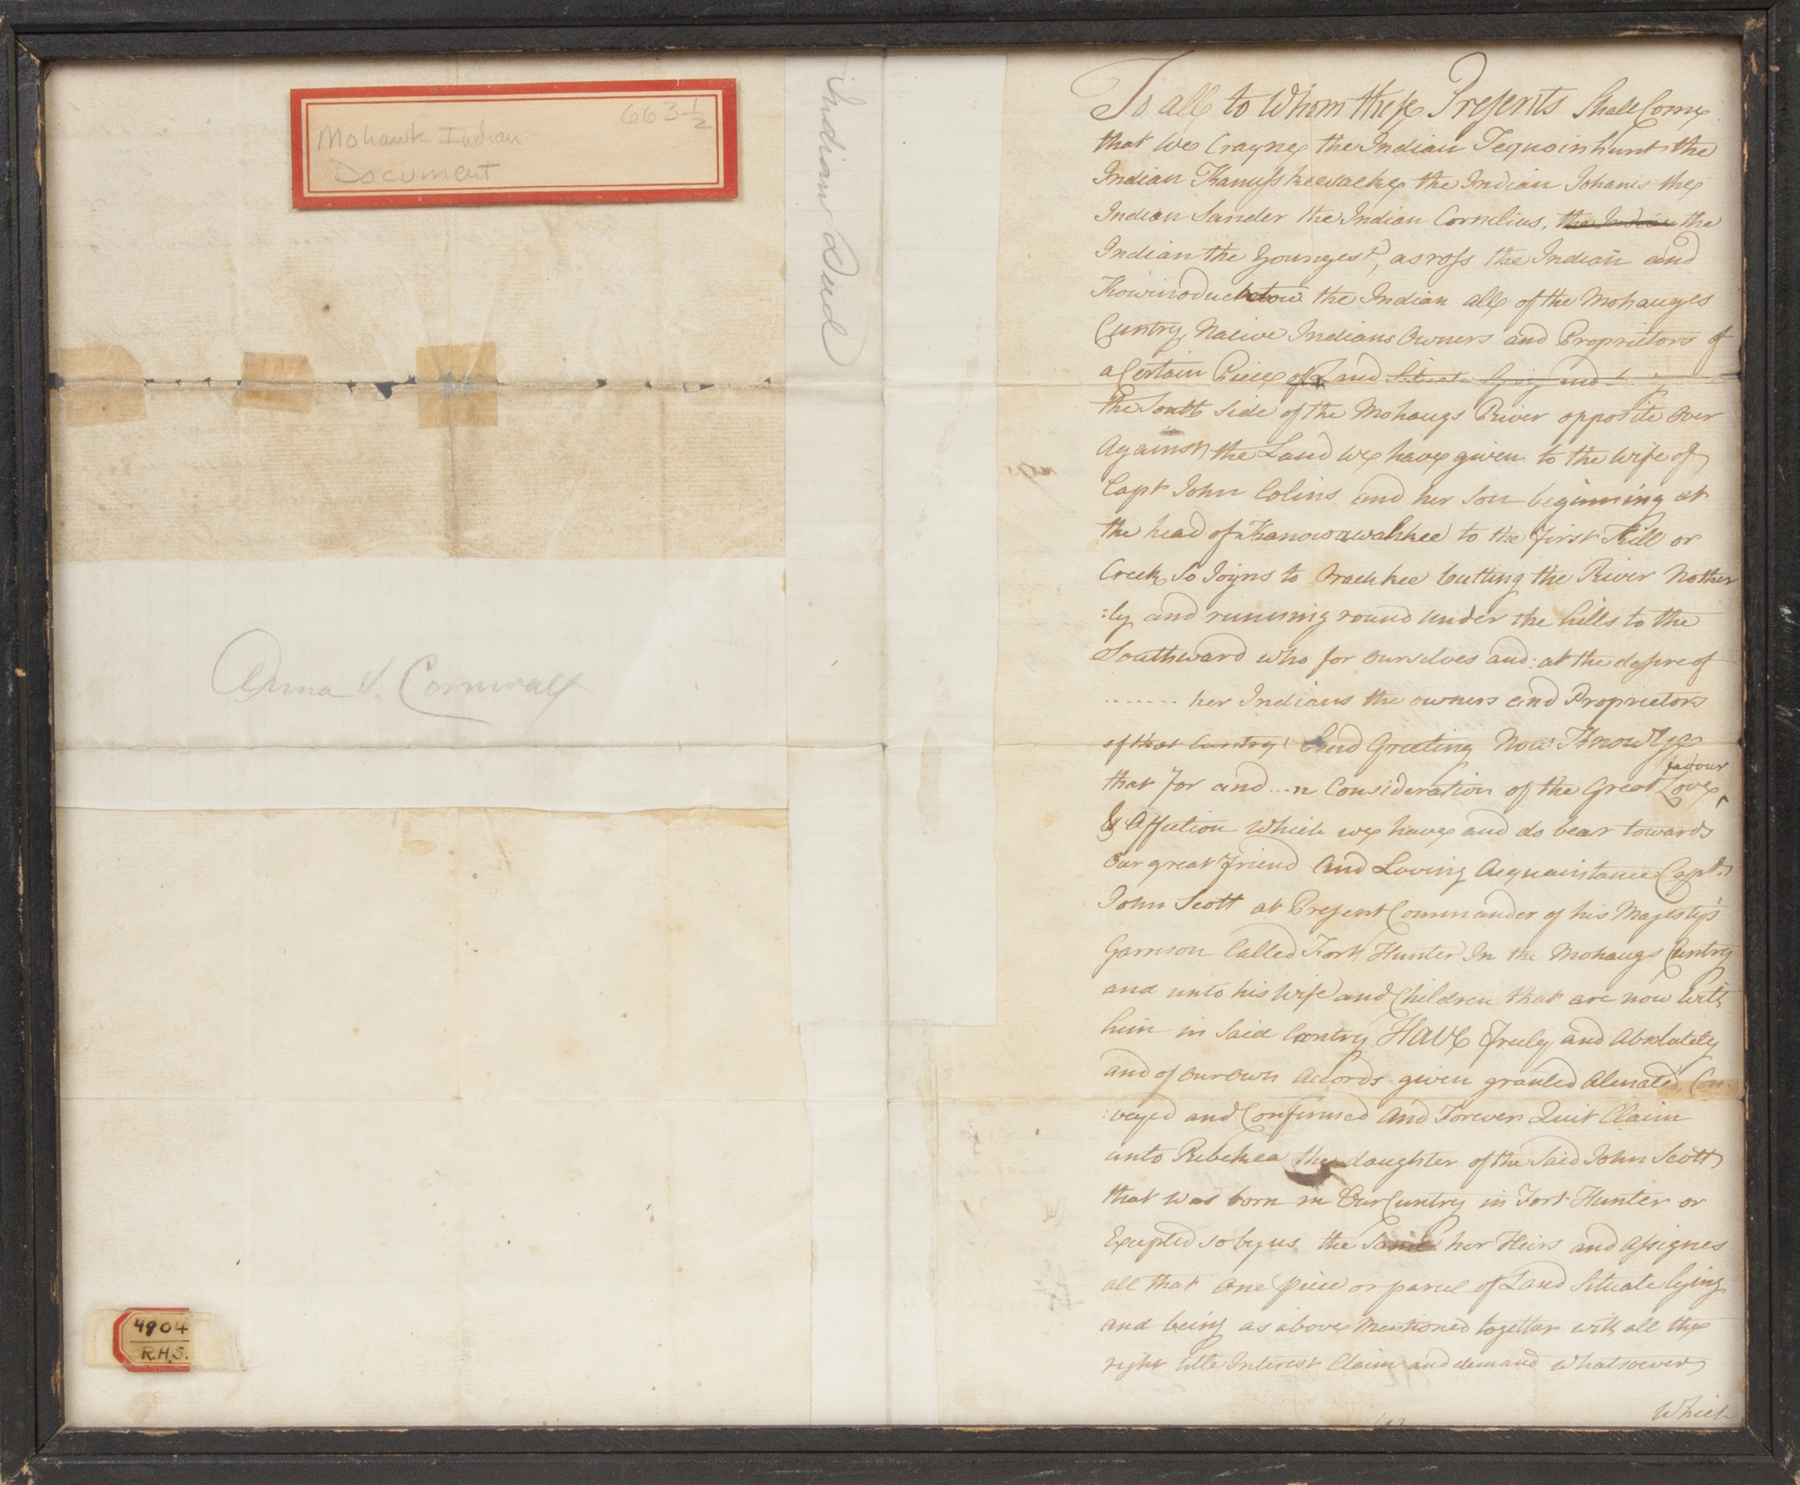 663 1/2
Mohawk Indian
Document
Indian Deed
Anna V. Cornwall
4904
R.H.S.
To all to Whom these Presents Shall Come
that We Crayne the Indian Tequoinhunt the
Indian the Indian Johanis the
Indian Sander the Indian Cornilius, the Indian the
Indian the Youngest, asross the Indian and
the Indian all of the Mohauges
Cuntry Native Indians Owners and Proprietors of
a Certain Piece of Land
the South Side of the Mohaugs River opposite Over
Against the Land We have given to the Wife of
Capt John Colins and her Son beginning at
the head of Kanowawahkee to the first Kill or
Creek So Joyns to butting the River Nother
:ly and running round under the hills to the
Southward who for ourselves and at the desire of
....... her Indians the owners and Proprietors
of that Cuntry Send Greeting Now Know Ye
that for and ...n Consideration of the Great Love favour
& Affection Which we have and do bear towards
Our great friend And Loving Acquaintance Capt.
John Scott at Present Commander of his Majesty's
Garrison Called Fort Hunter In the Mohaugs Cuntry
and unto his Wife and Children that are now With
him in Said Contry Have freely and Absolutely
and of Our own Accords given granted Alenated Con-
:veyed and Confirmed And Forever Quit Claim
unto Rebekea the daughter of the Said John Scott
that was born in Our Cuntry in Fort Hunter or
Excepted so by us the Same her Heirs and Assignes
all that One Piece or parcel of Land Situate lying
and being as above Mentioned togettar with all the
right title Interest Claim and demand Whatsoever
Which